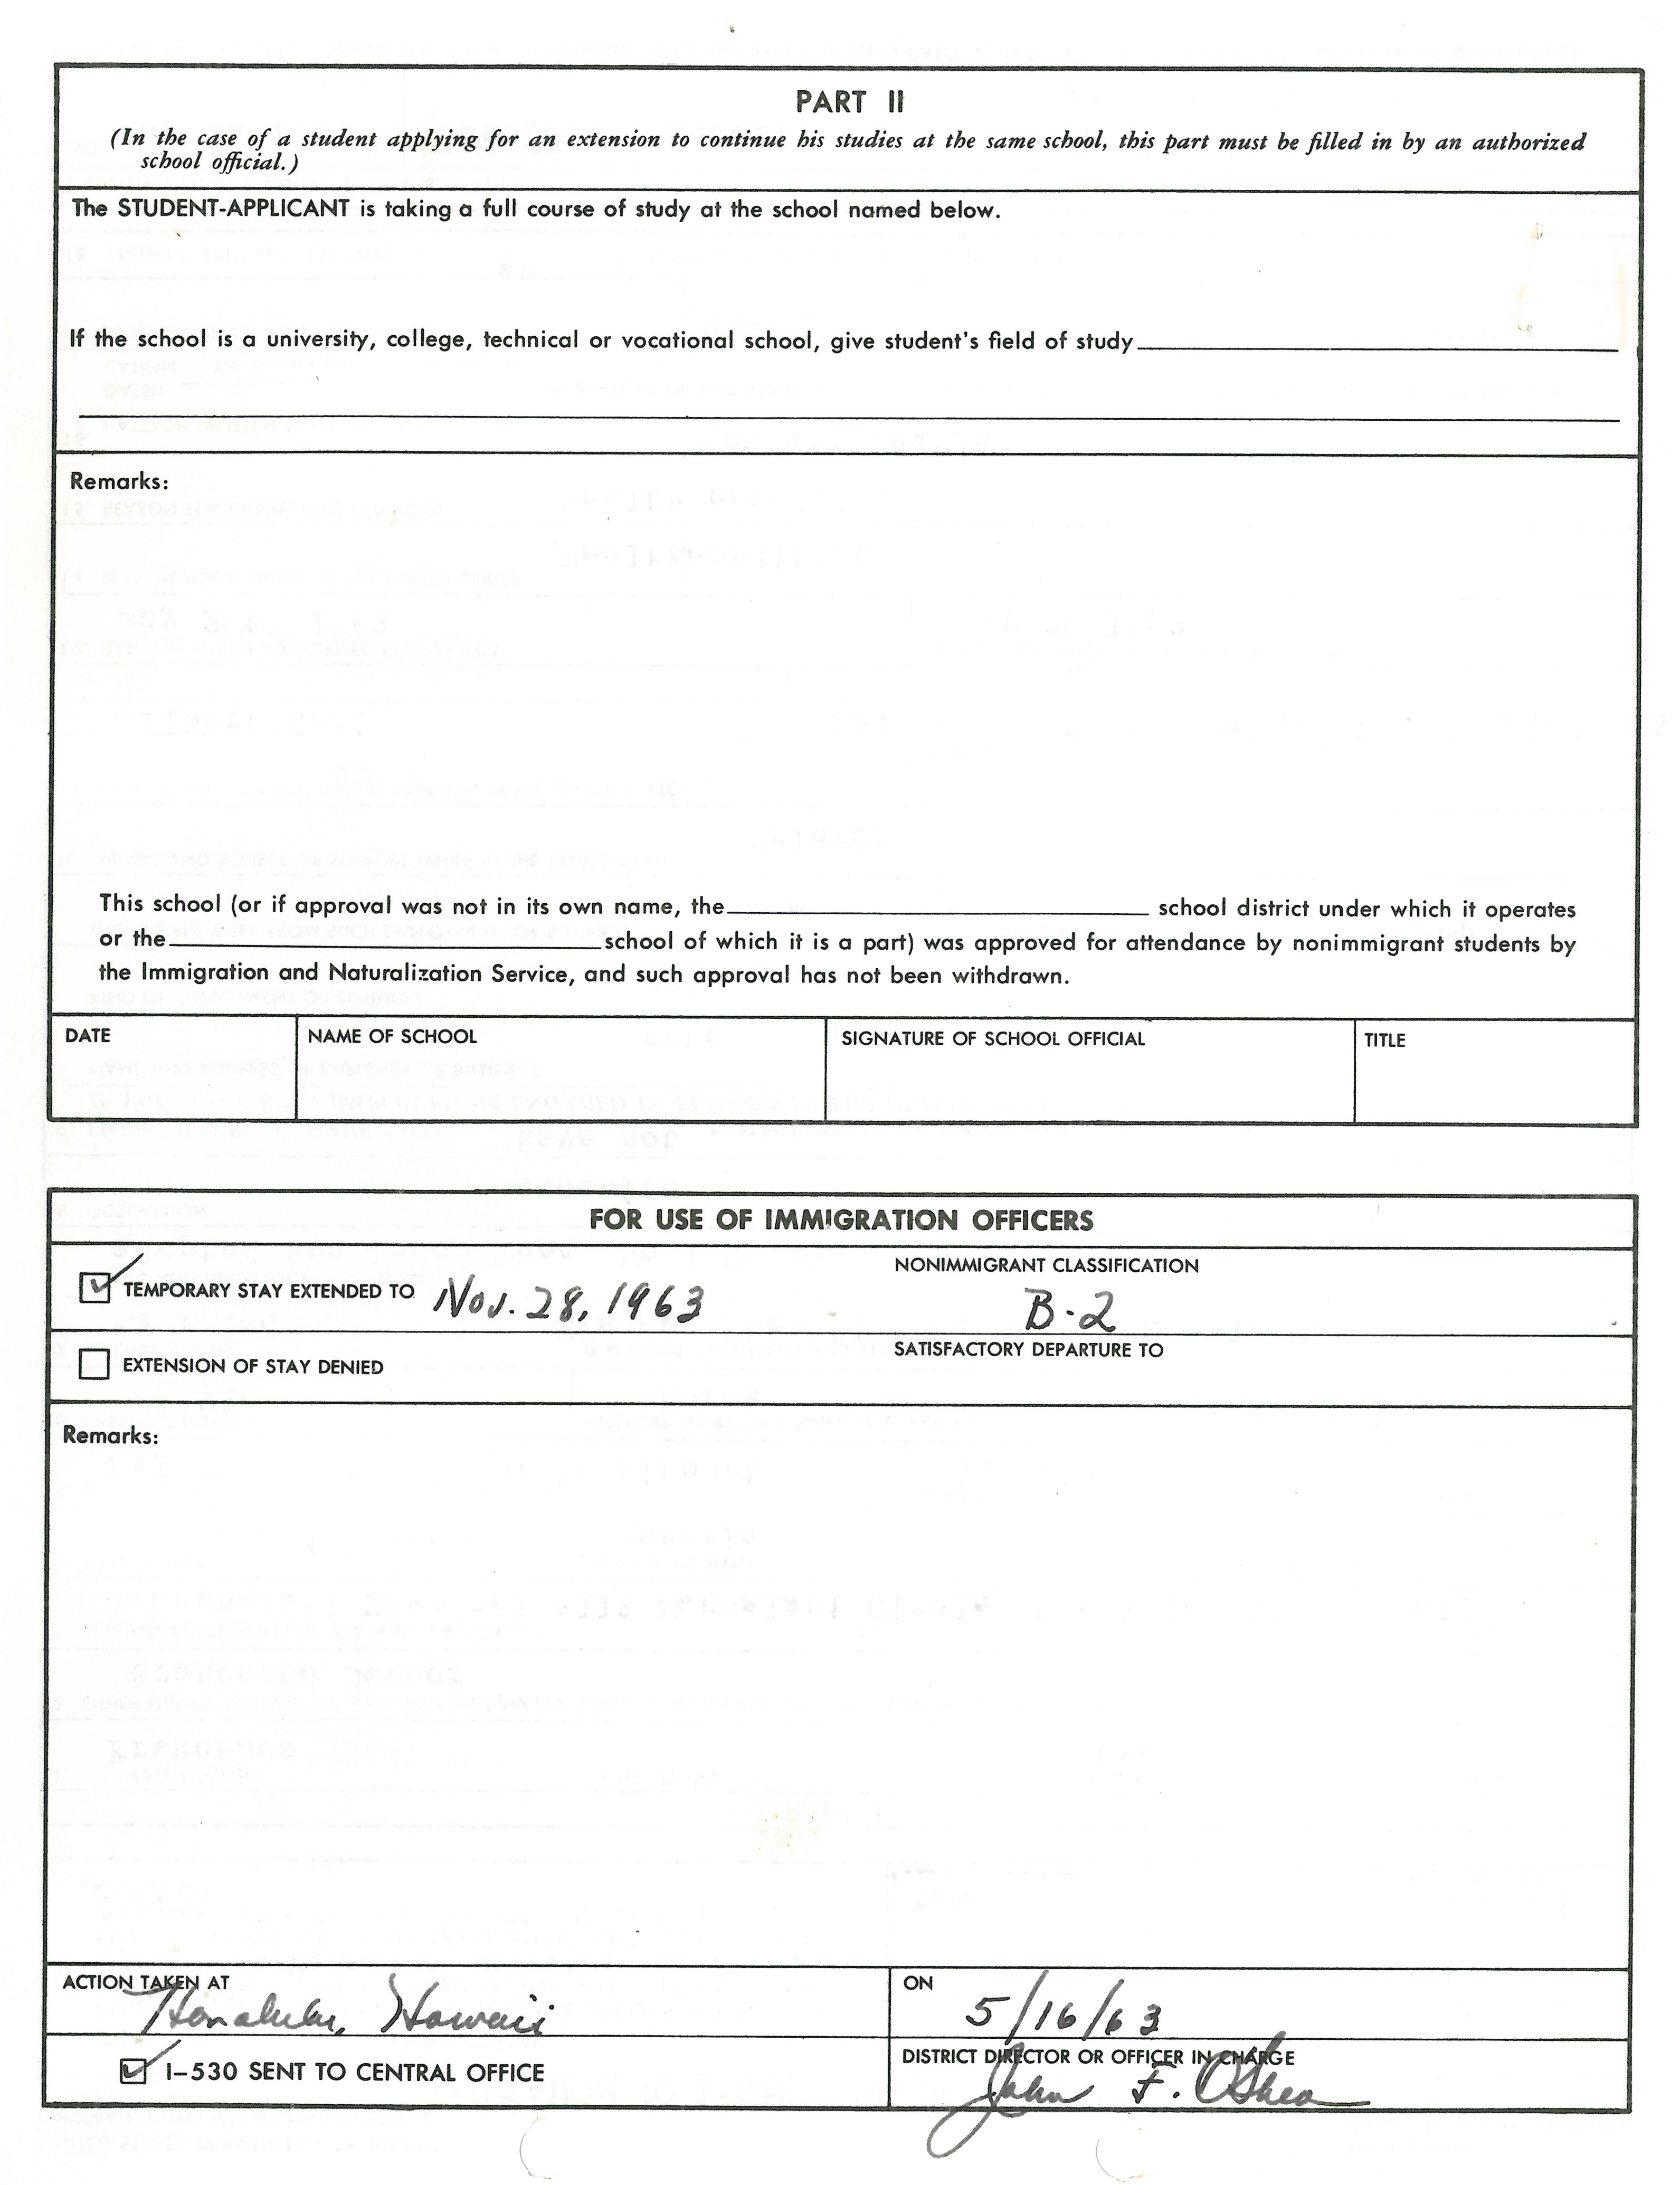 PART II
(In the case of a student applying for an extension to continue his studies at the same school, this part must be filled in by an authorized
school official.)
The STUDENT-APPLICANT is taking a full course of study at the school named below.
If the school is a university, college, technical or vocational school, give student's field of study
Remarks:
This school (or if approval was not in its own name, the school district under which it operates
or the school of which it is a part) was approved for attendance by nonimmigrant students by
the Immigration and Naturalization Service, and such approval has not been withdrawn.
DATE
NAME OF SCHOOL
SIGNATURE OF SCHOOL OFFICIAL
TITLE
FOR USE OF IMMIGRATION OFFICERS
TEMPORARY STAY EXTENDED TO Nov. 28, 1963
NONIMMIGRANT CLASSIFICATION
B-2
EXTENSION OF STAY DENIED
SATISFACTORY DEPARTURE TO
Remarks:
ACTION TAKEN AT
Honolulu, Hawaii
ON
5/16/63
I-530 SENT TO CENTRAL OFFICE
DISTRICT DIRECTOR OR OFFICER IN CHARGE
John F. O'Shea